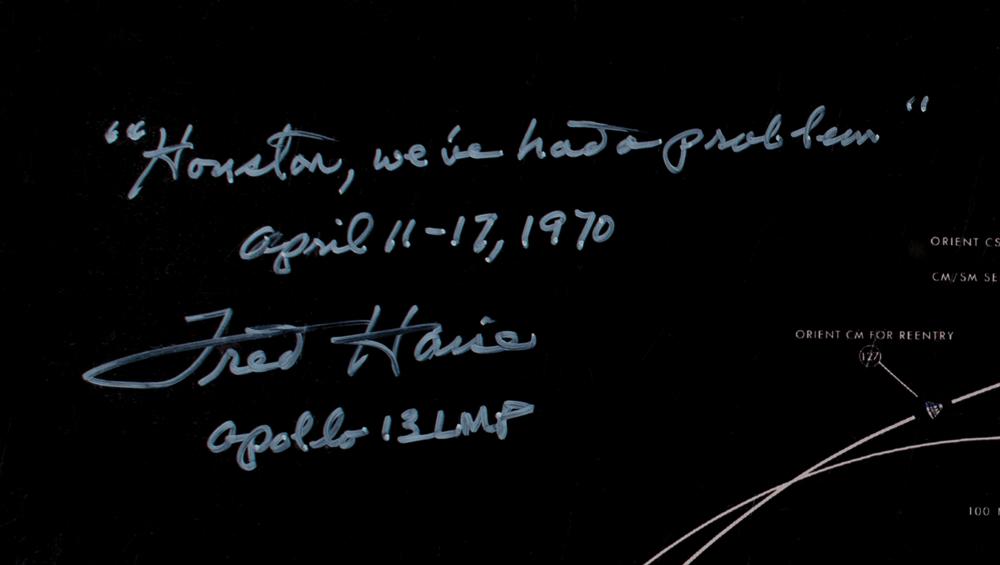 “Houston, we've had a problem”
april 11-17, 1970
ORIENT CS
CM/SM SE
Fred Haise
ORIENT CM FOR REENTRY
127
apollo 13 LMP
100